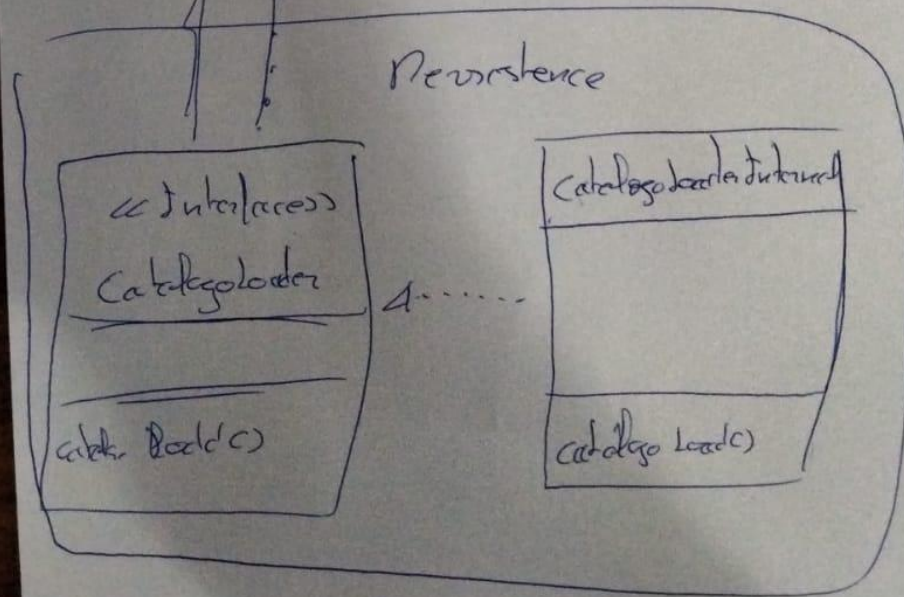 Persistence
<<Interface>>
CatalogoLoader
Load()
CatalogoLoaderInternal
Catálogo Load()